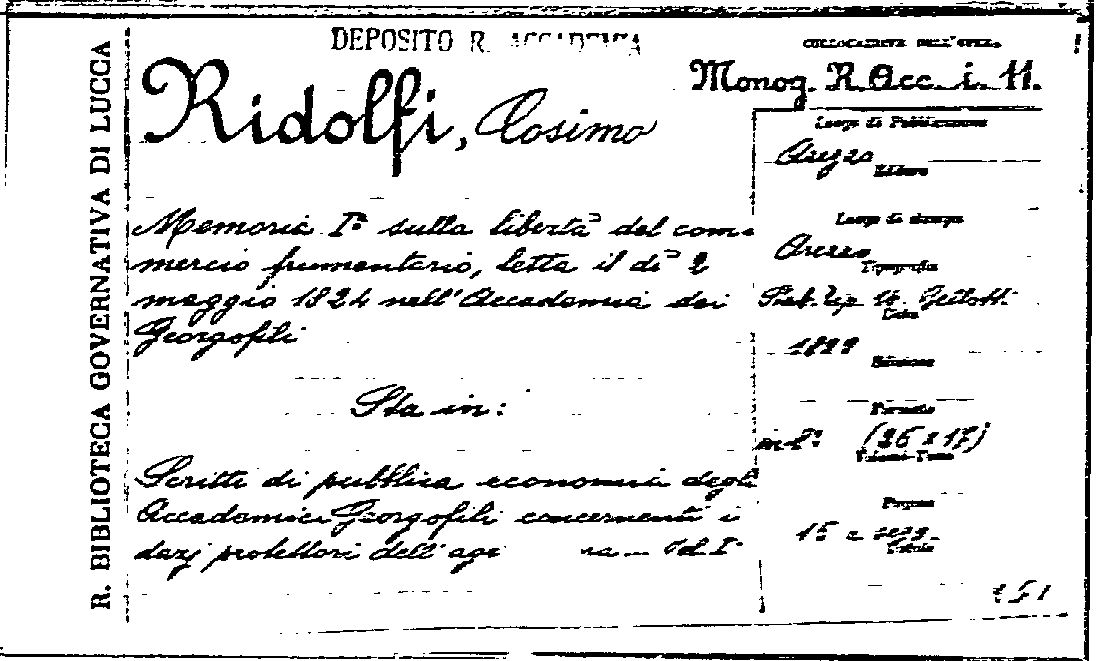 R. BIBLIOTECA GOVERNATIVA DI LUCCA
DEPOSITO R. ACCADEMIA
COLLOCAZIONE DELL'OPERA
Monog. R. Acc. i. 11.
Ridolfi, Cosimo
Luogo di Pubblicazione
Arezzo
Editore
Memoria Iª sulla libertà del com-
mercio frumentario, letta il dì 2
maggio 1824 nell'Accademia dei
Georgofili
Luogo di stampa
Arezzo
Tipografia
Data
Edizione
Sta in:
Formato
in-8º (26 x 17)
Volume-Tomo
Scritti di pubblica economia degli
Accademici Georgofili concernenti i
dazj protettori dell' Vol. Iº
Pagine
15 e segg.